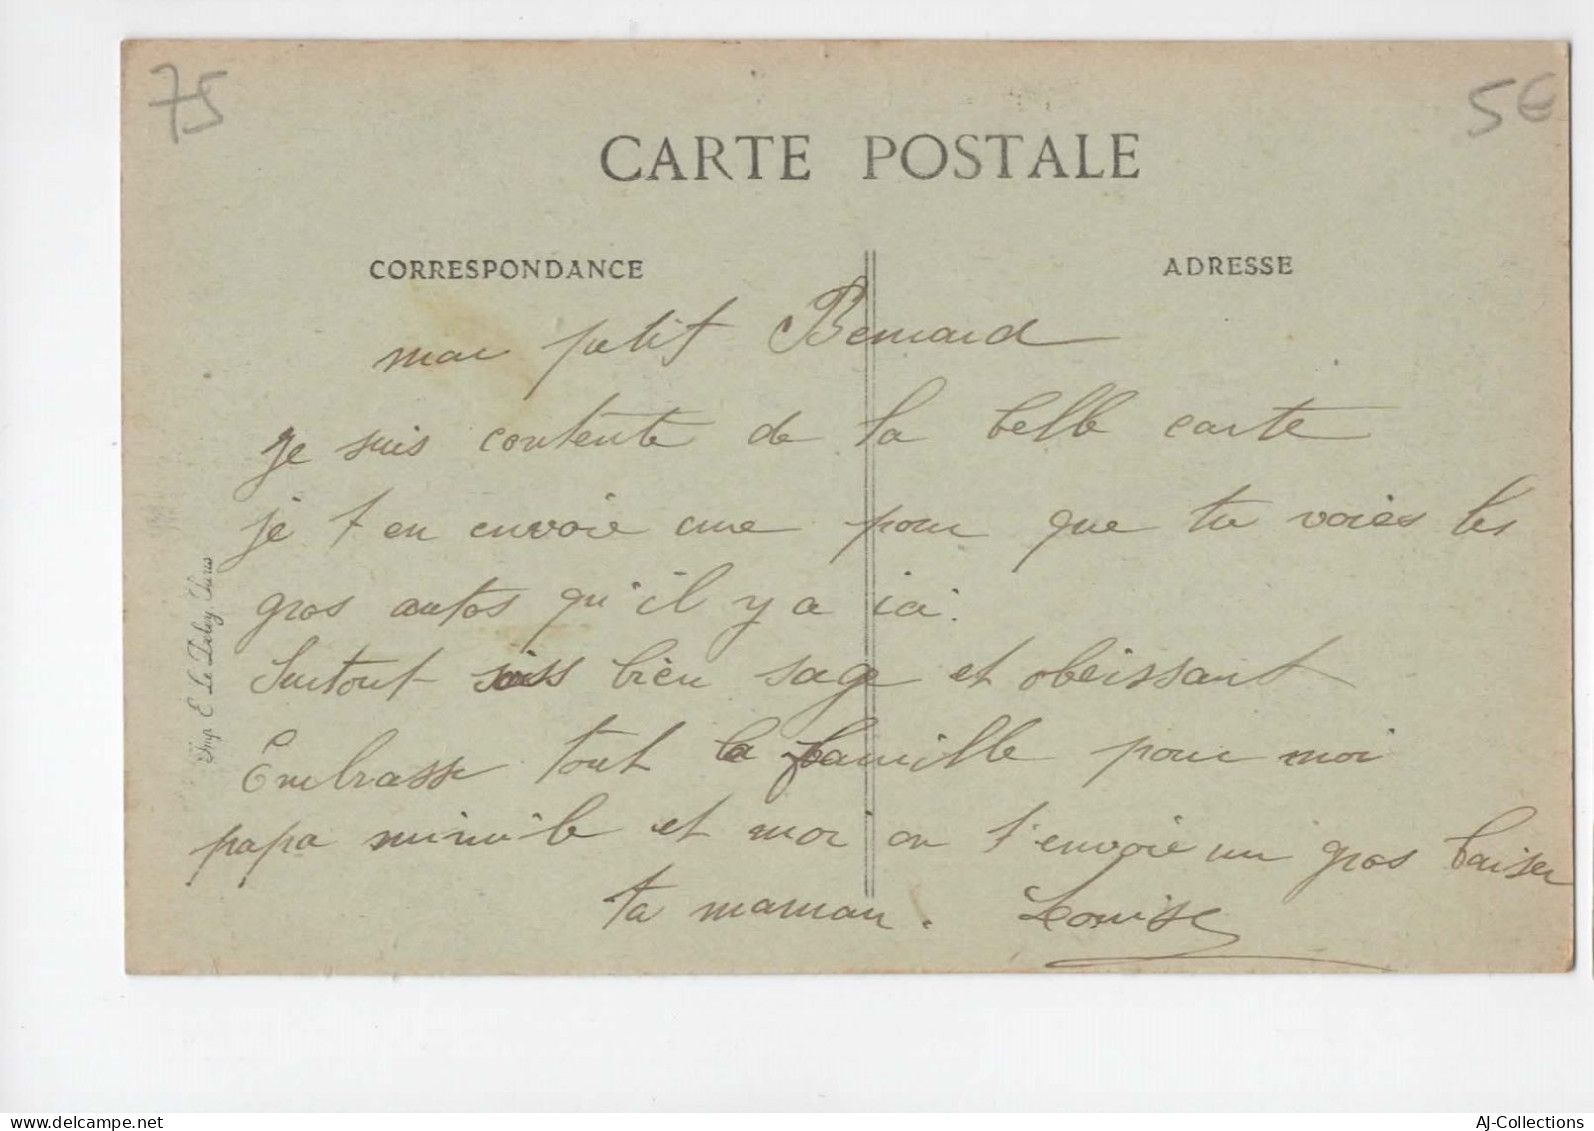 75
5€
CARTE POSTALE
CORRESPONDANCE
ADRESSE
mon petit Bernard
Je suis contente de la belle carte
je t en envoie une pour que tu voies les
gros autos qu'il y a ici.
Surtout sois bien sage et obeissant
Embrasse tout la famille pour moi
papa et moi on t'envoie un gros baiser
ta maman. Louise
Imp. E. Le Deley, Paris
AJ-Collections